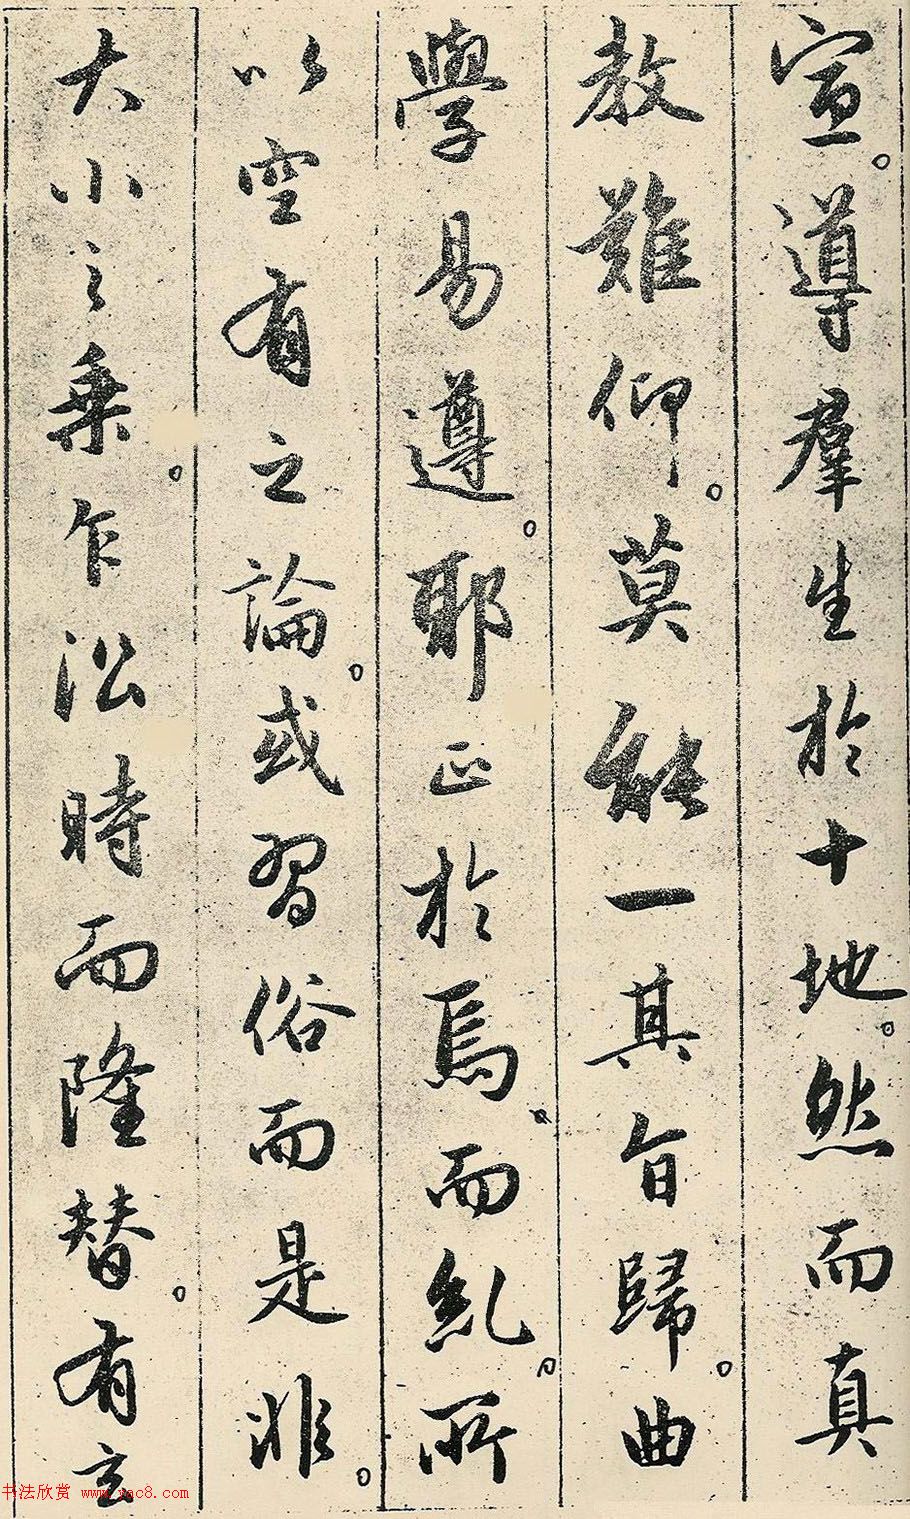 宣。導羣生於十地。然而真
教難仰。莫能一其旨歸。曲
學易遵。耶正於焉而糺。所
以空有之論。或習俗而是非。
大小之乘。乍沿時而隆替。有玄
书法欣赏 www.yac8.com